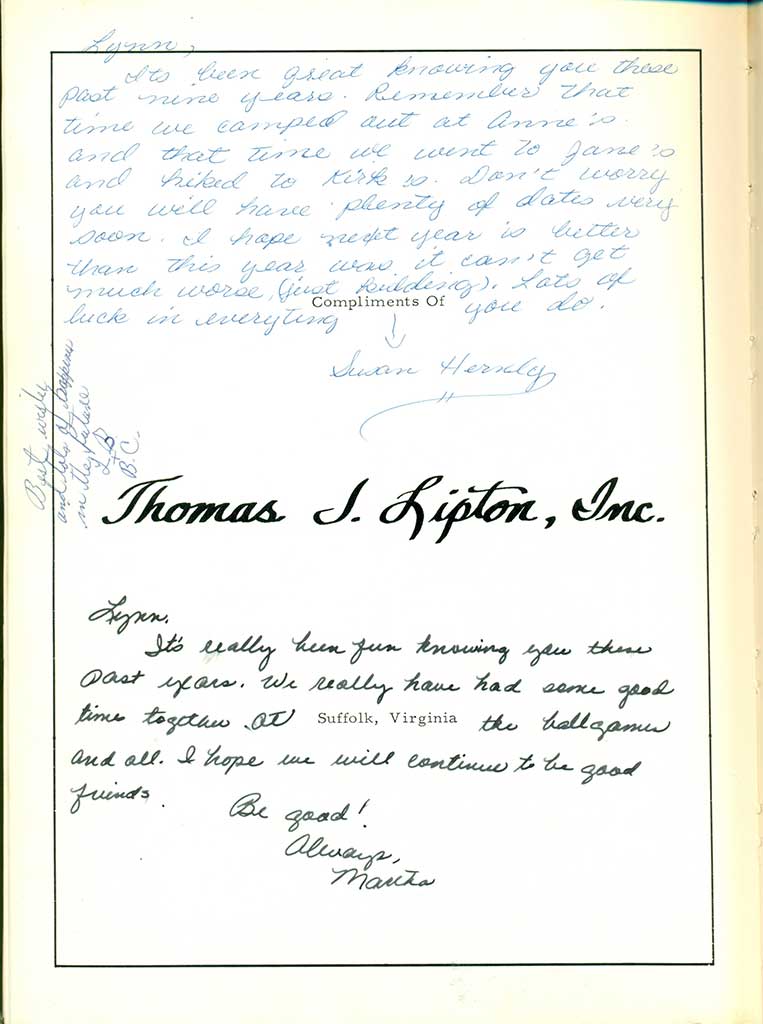 Lynn,
Its been great knowing you these
past nine years. Remember that
time we camped out at Anne's.
and that time we went to Jane's
and hiked to Kirk's. Don't worry
you will have plenty of dates very
soon. I hope next year is better
than this year was, it can't get
much worse, (just kidding). Lots of
Compliments Of
luck in everyting you do.
Susan
Best wishes
and lots of happiness
in the future
B.C.
Thomas J. Lipton, Inc.
Lynn,
It's really been fun knowing you these
past years. We really have had some good
times together at the ballgames
Suffolk, Virginia
and all. I hope we will continue to be good
friends.
Be good!
Always,
Martha